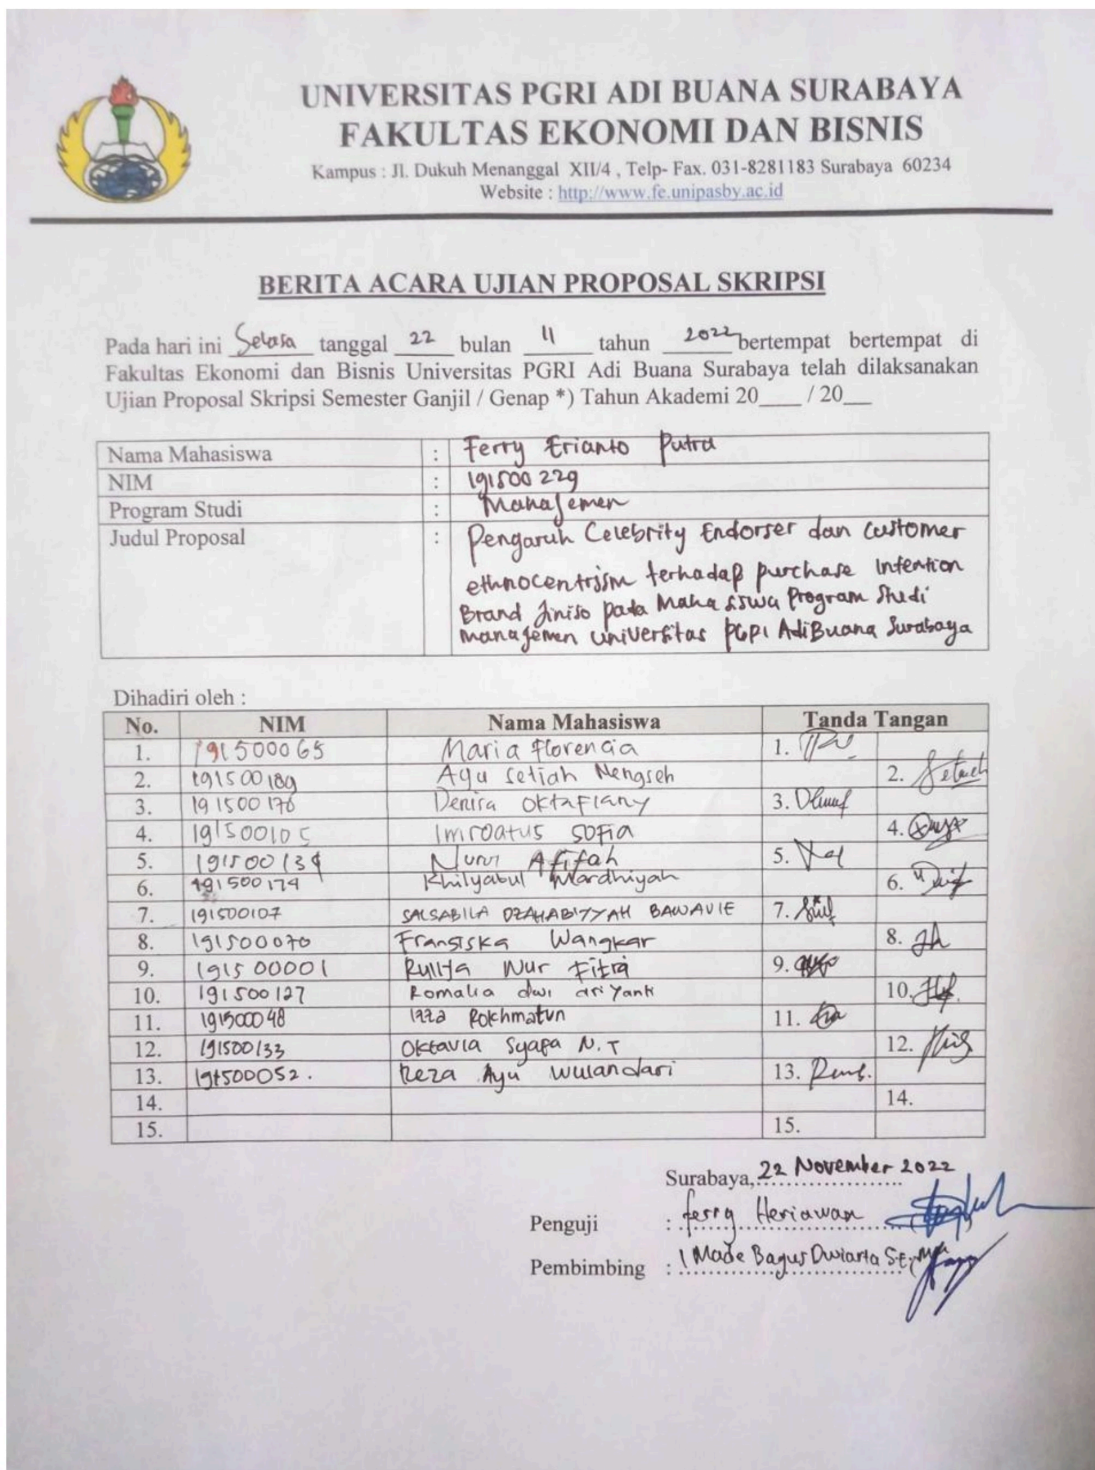 UNIVERSITAS PGRI ADI BUANA SURABAYA
FAKULTAS EKONOMI DAN BISNIS
Kampus : Jl. Dukuh Menanggal XII/4 , Telp- Fax. 031-8281183 Surabaya 60234
Website : http://www.fe.unipasby.ac.id
BERITA ACARA UJIAN PROPOSAL SKRIPSI
Pada hari ini Selasa tanggal 22 bulan 11 tahun 2022 bertempat bertempat di
Fakultas Ekonomi dan Bisnis Universitas PGRI Adi Buana Surabaya telah dilaksanakan
Ujian Proposal Skripsi Semester Ganjil / Genap *) Tahun Akademi 20____ / 20___
Nama Mahasiswa : Ferry Erianto Putra
NIM : 191500229
Program Studi : Manajemen
Judul Proposal : Pengaruh Celebrity Endorser dan customer
ethnocentrism terhadap purchase Intention
Brand Jiniso pada Mahasiswa Program Studi
Manajemen Universitas PGPI AdiBuana Surabaya
Dihadiri oleh :
No. NIM Nama Mahasiswa Tanda Tangan
1. 191500065 Maria Florencia 1.
2. 191500189 Ayu Setiah Nengseh 2.
3. 191500176 Denira Oktafiany 3.
4. 191500105 Imroatus Sofia 4.
5. 191500134 Nurur Afifah 5.
6. 191500174 Khilyabul Mardhiyah 6.
7. 191500107 SALSABILA DZAHABIYYAH BAWAVIE 7.
8. 191500070 Fransiska Wangkar 8.
9. 191500001 Rullita Nur Fitri 9.
10. 191500127 Romalia dwi ariyanti 10.
11. 191500048 Izza Rokhmatun 11.
12. 191500133 Oktavia Syafa N.T 12.
13. 191500052. Reza Ayu Wulandari 13.
14. 14.
15. 15.
Surabaya, 22 November 2022
Penguji : Ferry Heriawan
Pembimbing : I Made Bagus Dwiarta S.E,